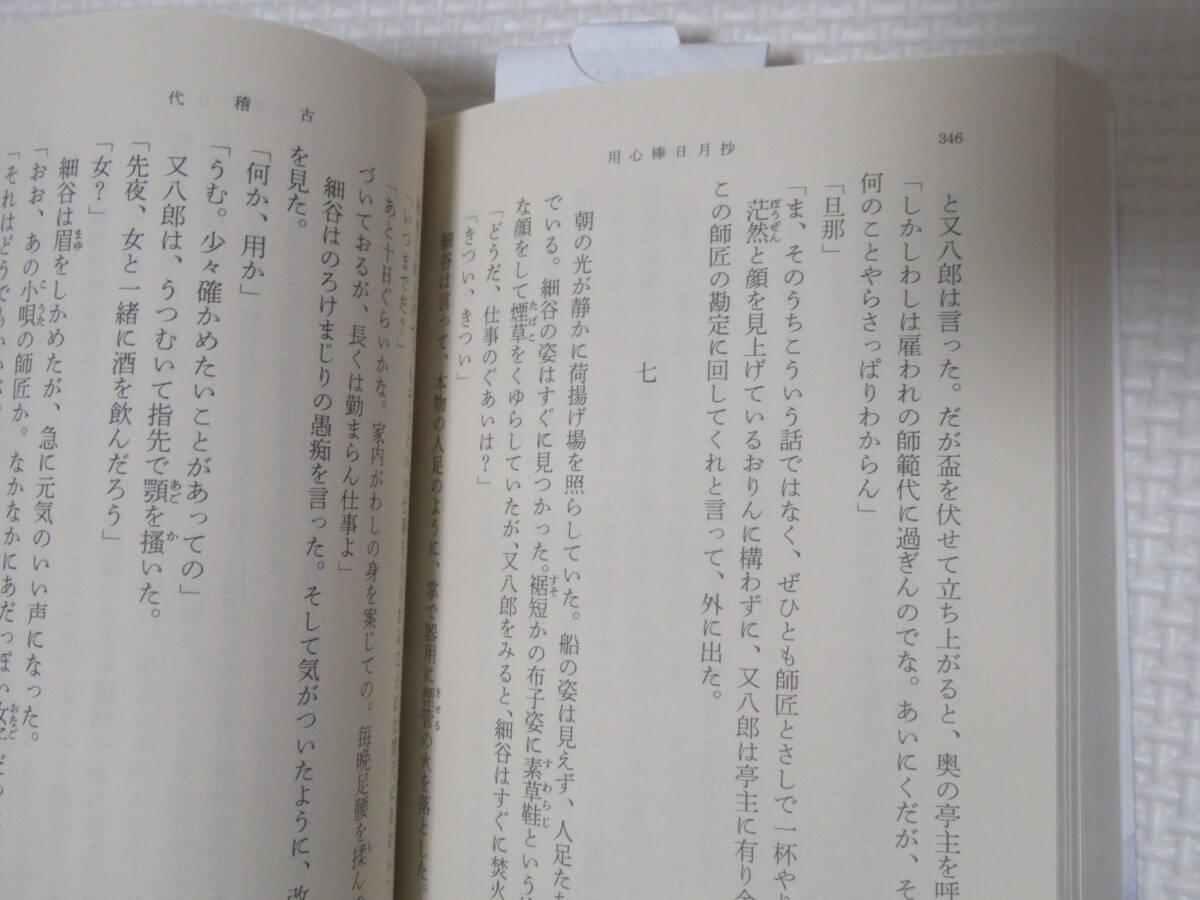 346
用心棒日月抄
と又八郎は言った。だが盃を伏せて立ち上がると、奥の亭主を呼
「しかしわしは雇われの師範代に過ぎんのでな。あいにくだが、そ
何のことやらさっぱりわからん」
「旦那」
「ま、そのうちこういう話ではなく、ぜひとも師匠とさしで一杯やり
茫然と顔を見上げているおりんに構わずに、又八郎は亭主に有り金
この師匠の勘定に回してくれと言って、外に出た。
七
朝の光が静かに荷揚げ場を照らしていた。船の姿は見えず、人足たち
でいる。細谷の姿はすぐに見つかった。裾短かの布子姿に素草鞋という
な顔をして煙草をくゆらしていたが、又八郎をみると、細谷はすぐに焚火
「どうだ、仕事のぐあいは?」
「きつい、きつい」
細谷は言って、本物の人足のように、掌で器用に煙管の火を落とした。
「いつまでだ?」
「あと十日ぐらいかな。家内がわしの身を案じての。毎晩足腰を揉ん
づいておるが、長くは勤まらん仕事よ」
細谷はのろけまじりの愚痴を言った。そして気がついたように、改
を見た。
「何か、用か」
「うむ。少々確かめたいことがあっての」
又八郎は、うつむいて指先で顎を掻いた。
「先夜、女と一緒に酒を飲んだろう」
「女?」
細谷は眉をしかめたが、急に元気のいい声になった。
「おお、あの小唄の師匠か。なかなかにあだっぽい女子だっ
「それはどうでもいいが
代稽古